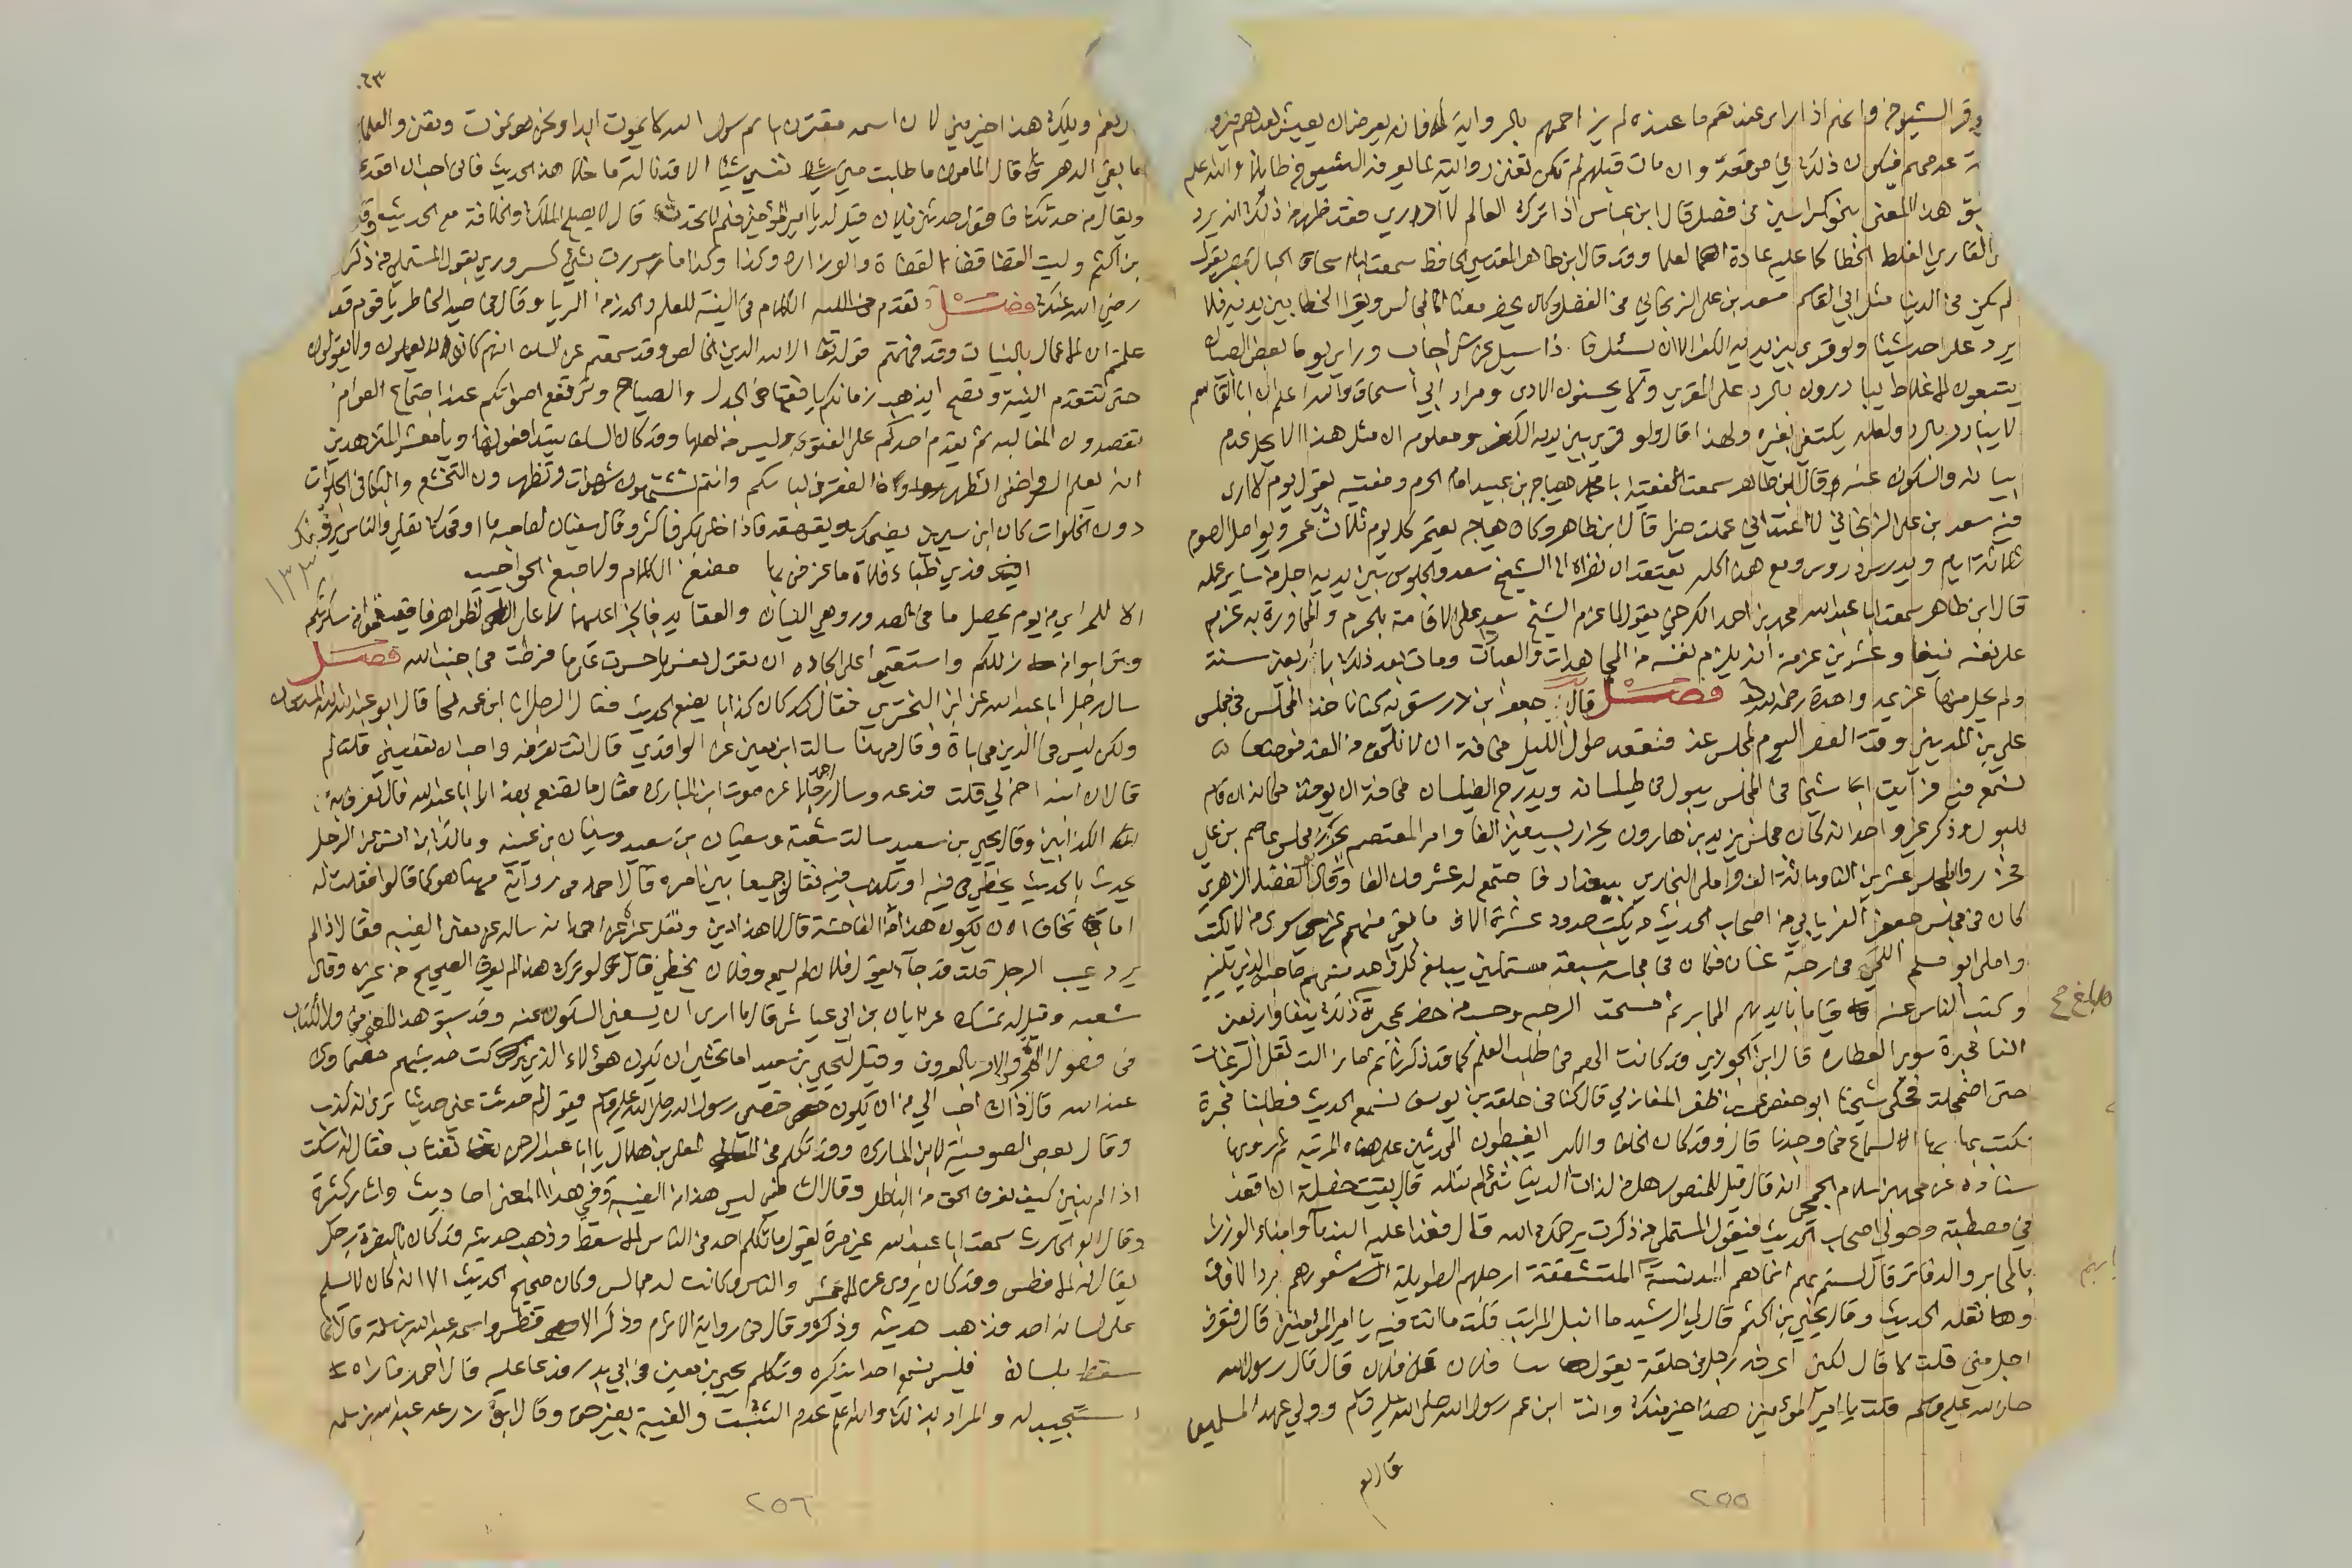 وقر الشيوخ وانه اذا راى عندهم ما عنده لم يزاحمهم بالرواية له فانه يعرض ان يعيش بعدهم
عدهم فيكون ذلك في موقعه وان مات قبلهم لم تكن تغنى روايته مما يعرفه الشيوخ طائلا والله اعلم
هذا المعنى بنحو كراسين في فصل قال ابن عباس اذا ترك العالم لا ادري فقد ظهر من ذلك انه يرد
القاري الغلط الخطا كما عليه عادة العلما وقد قال ابن طاهر المقدسي الحافظ سمعت ابا اسحاق الحبال بمصر يقول
لم يكن في الدنيا مثل ابي القاسم سعد بن علي الزنجاني في الفضل وكان يحضر معنا المجالس ويقرا الخطا بين يديه فلا
يرد على احد شيئا ولو قرى بين يديه الكفر الا ان يسئل فاذا سئل عن شي اجاب وراى يوما بعض الصبيان
يتتبعون الاغلاط يبادرون بالرد على المقري ولا يحسنون الادب ومراد ابي اسحاق والله اعلم ان ابا القاسم
لا يبادر بالرد ولعله يكتفي بغيره ولهذا قال ولو قرى بين يديه الكفر ومعلوم ان مثل هذا لا يحل عدم
بيانه والسكوت عنه وقال ابن طاهر سمعت الفقيه ابا محمد هياج بن عبيد امام الحرم ومفتيه يقول يوم لا ارى
فيه سعد بن علي الزنجاني لا اعتد اني عملت خيرا قال ابن طاهر وكان هياج يعتمر كل يوم ثلاث عمر ويواصل الصوم
ثلاثة ايام ويدرس دروس ومع هذا كله يعتقد ان نظره الى الشيخ سعد والجلوس بين يديه اجل من سائر عمله
قال ابن طاهر سمعت ابا عبد الله محمد بن احمد الكرجي يقول لما عزم الشيخ سعد على الاقامة بالحرم والمجاورة به عزم
على نفسه نيفا وعشرين عزمة انه يلزم نفسه من المجاهدات والعبادات ومات بعد ذلك باربعين سنة
ولم يخل منها عزيمة واحدة رحمه الله فصل قال جعفر بن درستويه كنا ناخذ المجلس في مجلس
علي بن المديني وقت العصر اليوم لمجلس غد فنقعد طول الليل مخافة ان لا نلحق من الغد موضعا
نسمع فيه فرايت شيخا في المجلس يبول في طيلسانه ويدرج الطيلسان مخافة ان يوخذ مكانه ان قام
للبول وذكر غير واحد انه كان مجلس يزيد بن هارون يحزر بسبعين الفا وامر المعتصم بحزر مجلس عاصم بن علي
فحزروا المجلس عشرين الفا ومائة الف واملى البخاري ببغداد فاجتمع له عشرون الفا وقال ابو الفضل الزهري
كان في مجلس جعفر الفريابي من اصحاب الحديث من يكتب حدود عشرة الاف ما بقي منهم غيري سوى من لا يكتب
واملى ابو مسلم اللجي في رحبة غسان فكان في مجلسه سبعة مستملين يبلغ كل واحد منهم صاحبه الذي يليه
وكتب الناس عنه قياما بايديهم المحابر ثم مسحت الرحبة وحسب من حضر بمحبرة فبلغ ذلك نيفا واربعين
الفا محبرة سوى النظارة قال ابن الجوزي وقد كانت الهمم في طلب العلم كما قد ذكرنا ثم ما زالت تقل الرغبات
حتى اضمحلت فحكى شيخنا ابو حفص عمر بن ظفر المغازلي قال كنا في حلقة ابن يوسف نسمع الحديث فطلبنا محبرة
نكتب بها السماع فما وجدنا قال وقد كان الخلفا والكبرا يغبطون المحدثين على هذه المرتبة ثم روى
باسناده عن محمد بن سلام الجمحي انه قال قيل للمنصور هل من لذات الدنيا شي لم تنله قال بقيت خصلة ان اقعد
في مصطبة وحولي اصحاب الحديث فيقول المستملي من ذكرت يرحمك الله قال فغدا عليه الندما وابناء الوزرا
بالمحابر والدفاتر قال لستم بهم انما هم الدنسة ثيابهم المتشققة ارجلهم الطويلة شعورهم برد الافاق
ونقلة الحديث وقال يحيى بن اكثم قال لي الرشيد ما انبل المراتب قلت ما انت فيه يا امير المؤمنين قال فتعرف
اجل مني قلت لا قال لكني اعرفه رجل في حلقة يقول حدثنا فلان عن فلان قال قال رسول الله
صلى الله عليه وسلم قلت يا امير المؤمنين هذا خير منك وانت ابن عم رسول الله صلى الله عليه وسلم وولي عهد المسلمين
قال نعم
بلغ
٢٥٥
٦٣
قال نعم ويلك هذا خير مني لان اسمه مقترن باسم رسول الله لا يموت ابدا ونحن نموت ونفنى والعلماء
ما بقي الدهر قال المامون ما طلبت مني نفسي شيئا الا قد نالته ما خلا هذا الحديث فاني احب ان اقعد
ويقال من حدثك فاقول حدثني فلان قيل له يا امير المؤمنين فلم لا تحدث قال لا يصلح الملك والخلافة مع الحديث وقد
بن اكثم وليت القضا وقضاء القضاة والوزارة وكذا وكذا ما سررت بشي كسروري بقول المستملي من ذكرت
رضي الله عنك فصل تقدم الكلام في النية للعلم والحذر من الريا وقال في صيد الخاطر يا قوم قد
علمتم ان الاعمال بالنيات وقد فهمتم قوله تعالى الا لله الدين الخالص وقد سمعتم عن السلف انهم كانوا لا يعملون ولا يقولون
حتى تتقدم النية وتصح ايذهب زمانكم يا فقها في الجدل والصياح وترتفع اصواتكم عند اجتماع العوام
تقصدون المغالبة ثم يقدم احدكم على الفتوى وليس من اهلها وقد كان السلف يتدافعونها ويا معشر المتزهدين
انه يعلم السر واخفى اتظهرون الفقر في لباسكم وانتم تشتهون شهوات وتظهرون التخشع والبكا في الجلوات
دون الخلوات كان ابن سيرين يضحك ويقهقه فاذا خلا بكى فاكثر وقال سفيان لصاحبه ما اوقحك تصلي والناس يرونك
١٣٣
افدي ظباء فلاة ما عرفن بها مضغ الكلام ولا صبغ الحواجيب
الا للمرائي من يوم يحصل ما في الصدور وهي النيات والعقايد فالجزا عليها لا على الظواهر فافيقوا من سكرتكم
وتوبوا من زللكم واستقيموا على الجادة ان تقول نفس يا حسرتى على ما فرطت في جنب الله فصل
سال رجل ابا عبد الله عن ابي البختري فقال كان كذابا يضع الحديث فقال الرجل انا ابن عمه لحا قال ابو عبد الله الله المستعان
ولكن ليس في الدين محاباة وقال مهنا سالت ابن معين عن الواقدي قال انت تعرفه واحب ان تعفيني قلت لم
قال ان ابنه اخ لي قلت فدعه وسال رجل احمد عن موت ابن المبارك فقال ما تصنع بهذا الى ابا عبد الله قال نعرف به
الكذابين وقال يحيى بن سعيد سالت شعبة وسفيان بن سعيد وسفيان بن عيينة ومالك بن انس عن الرجل
يحدث بالحديث يخطي فيه او يكذب فيه فقالوا جميعا بين امره قال احمد في رواية مهنا هو كما قالوا فقلت له
اما تخاف ان تكون هذا من الفاحشة قال لا هذا دين ونقل عن احمد انه ساله عن معنى الغيبة فقال اذا لم
يرد عيب الرجل قلت قد جاء يقول فلان لم يسمع وفلان يخطي قال لو ترك هذا لم يعرف الصحيح من غيره وقال
شعبة وقيل له تمسك عن ابان بن ابي عياش قال ما ارى ان يسعني السكوت عنه وقد سبق هذا المعنى
في فصول الامر بالمعروف وقيل ليحيى بن سعيد اما تخشى ان يكون هؤلاء الذين تركت حديثهم خصماءك
عند الله قال ذاك احب الي من ان يكون خصمي رسول الله صلى الله عليه وسلم فيقول لم حدثت عني حديثا ترى انه كذب
وقال بعض الصوفية لابن المبارك وقد تكلم في المعلى بن هلال يا ابا عبد الرحمن تغتاب فقال له اسكت
اذا لم نبين كيف نعرف الحق من الباطل وقال ليس هذا من الغيبة وفي هذا المعنى احاديث واثار كثيرة
وقال ابو الحارث سمعت ابا عبد الله غير مرة يقول ما تكلم احد في الناس الا سقط وذهب حديثه قد كان بالبصرة رجل
يقال له الافطس وقد كان يروى عن الاعمش والناس وكانت له مجالس وكان صحيح الحديث الا انه كان لا يسلم
على لسانه احد فذهب حديثه وذكره وقال في رواية الاثرم وذكر الافطس واسمه عبد الله بن سلمة قال انما
سقط بلسانه فليس نسمع احدا يذكره وتكلم يحيى بن معين في ابي بدر فدعا عليه قال احمد فاراه
استجيب له والمراد بذلك والله اعلم عدم التثبت والغيبة بغير حق وقال ابو زرعة عبد الله بن سلمة
٢٥٦